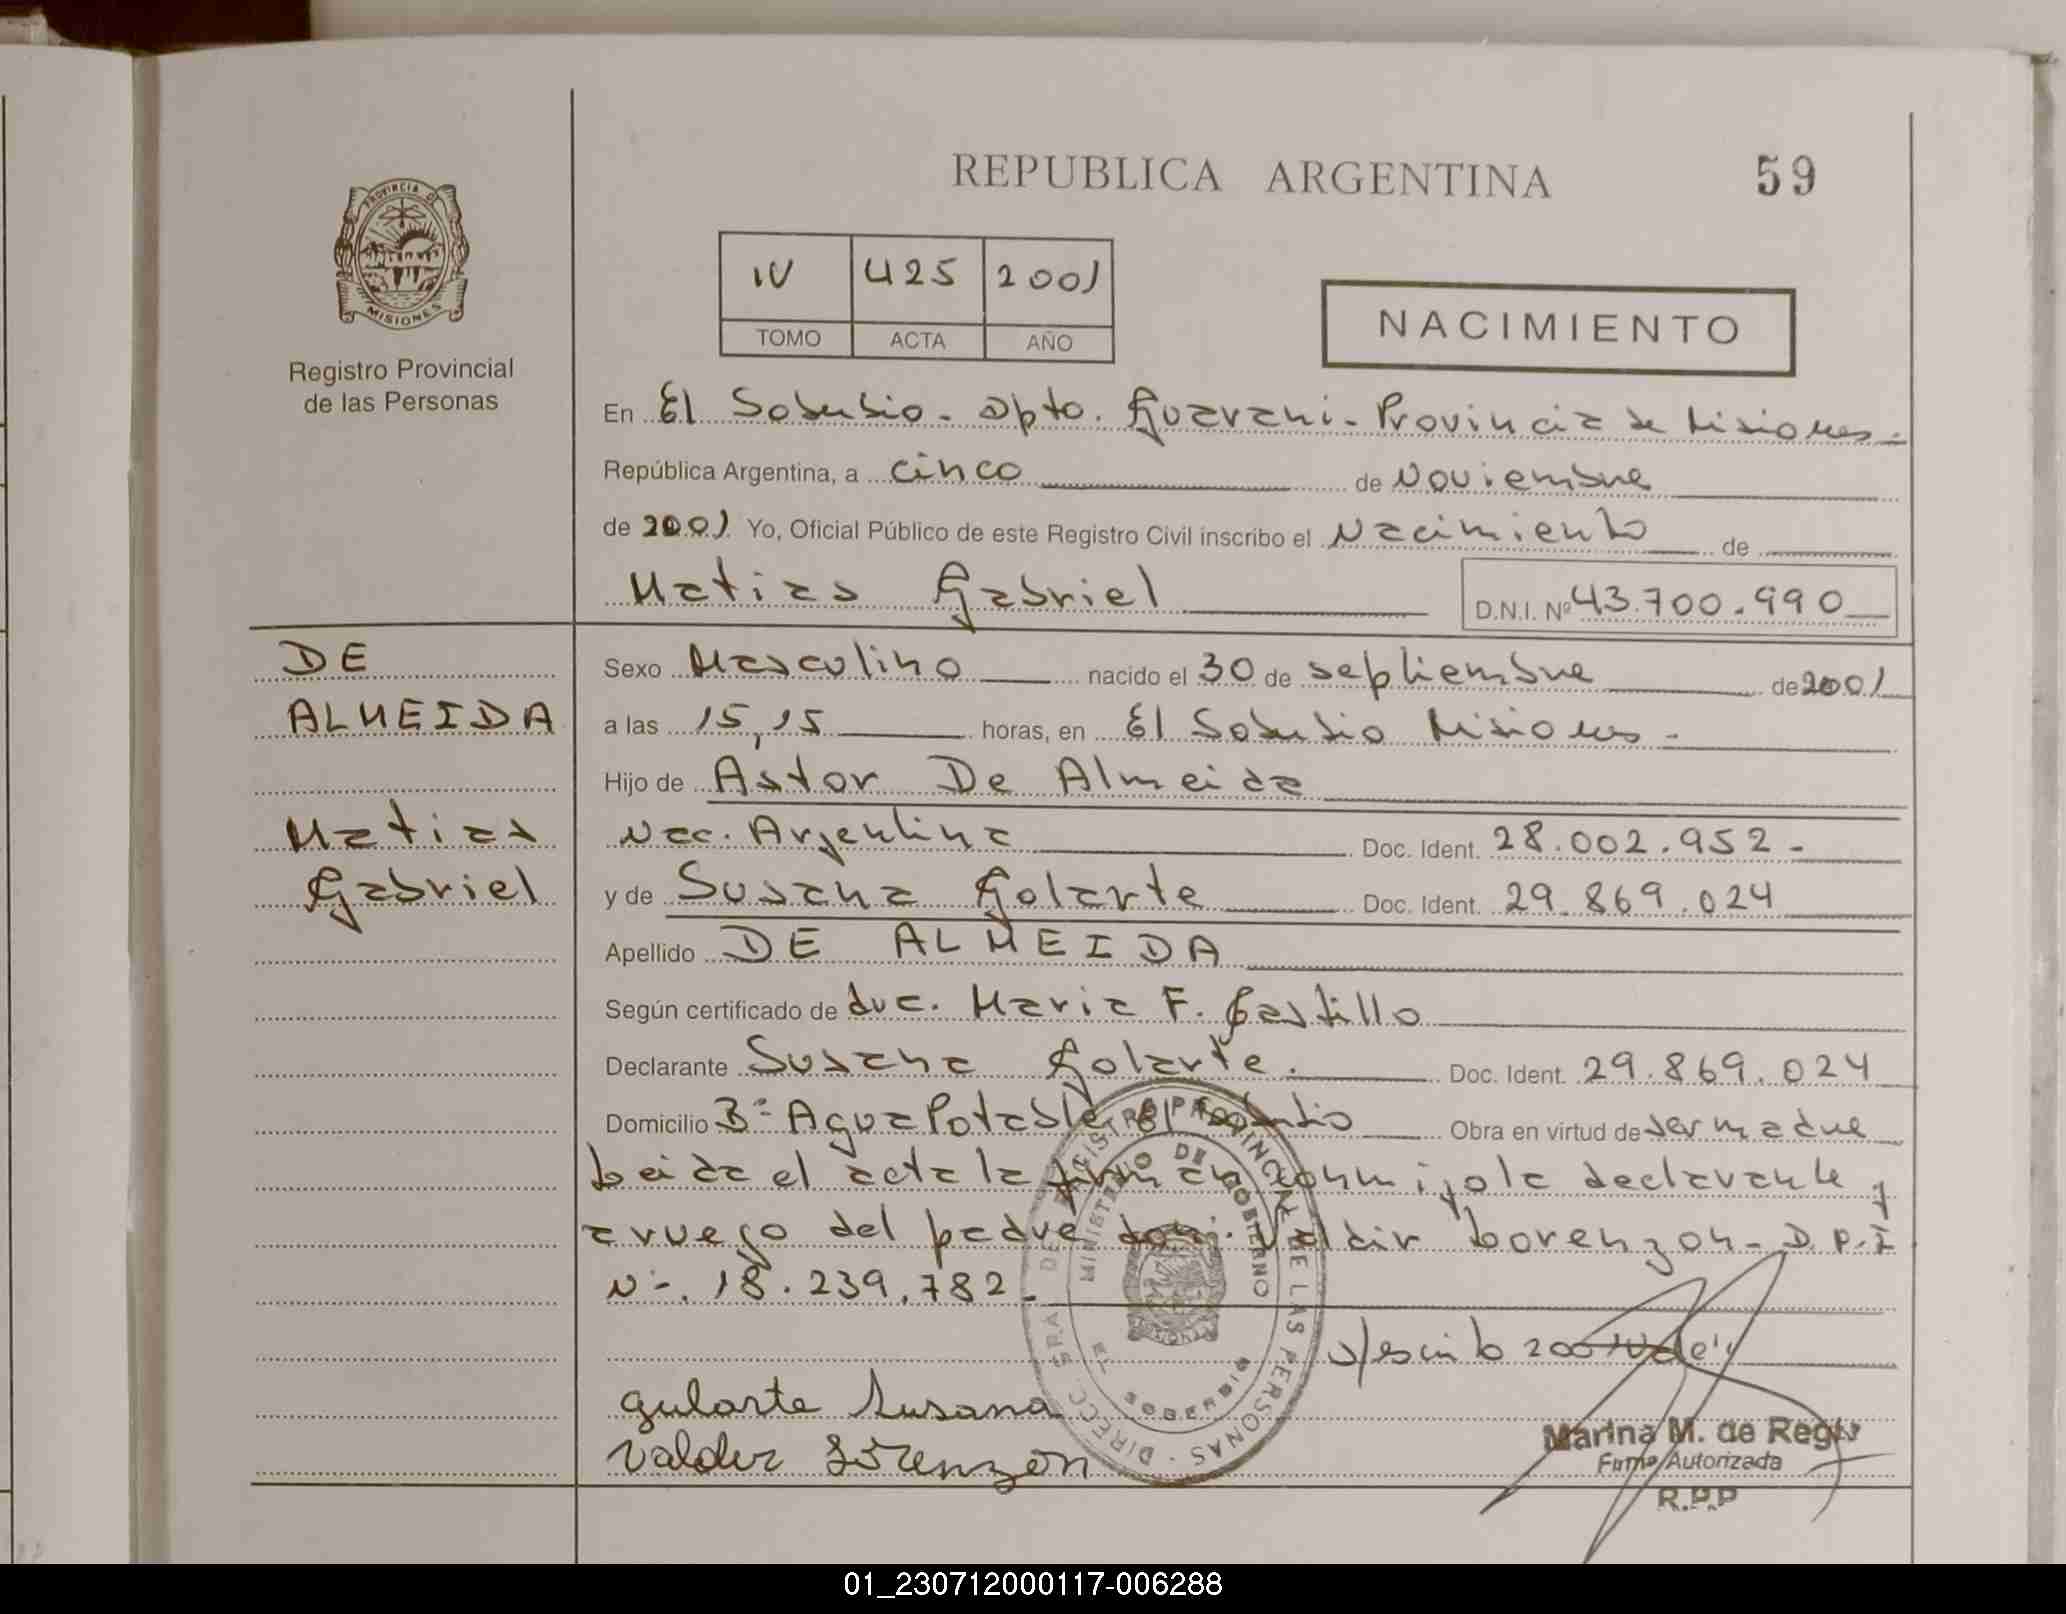 REPUBLICA ARGENTINA
59
PROVINCIA DE
MISIONES
Registro Provincial
de las Personas
IV 425 2001
TOMO ACTA AÑO
NACIMIENTO
En El Soberbio - Dpto. Guarani - Provincia de Misiones -
República Argentina, a cinco de Noviembre
de 2001 Yo, Oficial Público de este Registro Civil inscribo el Nacimiento de
Matias Gabriel D.N.I. Nº 43.700.990
DE
ALMEIDA
Matias
Gabriel
Sexo Masculino nacido el 30 de septiembre de 2001
a las 15,15 horas, en El Soberbio Misiones -
Hijo de Astor De Almeida
Nac. Argentina Doc. Ident. 28.002.952 -
y de Susana Golarte Doc. Ident. 29.869.024
Apellido DE ALMEIDA
Según certificado de Maria F. Castillo
Declarante Susana Golarte. Doc. Ident. 29.869.024
Domicilio Bº Agua Potable El Soberbio Obra en virtud de ser madre
Leida el acta la firman conmigo la declarante y
a ruego del padre Valdir Lorenzon - D.P.I
Nº. 18.239.782 -
DIRECC. GRAL. DE REGISTRO PROVINCIAL DE LAS PERSONAS
MINISTERIO DE GOBIERNO
EL SOBERBIO
S/escrito 2001 Vale
gularte Susana
Valdir Lorenzon
Marina M. de Regis
Firma Autorizada
R.P.P
01_230712000117-006288